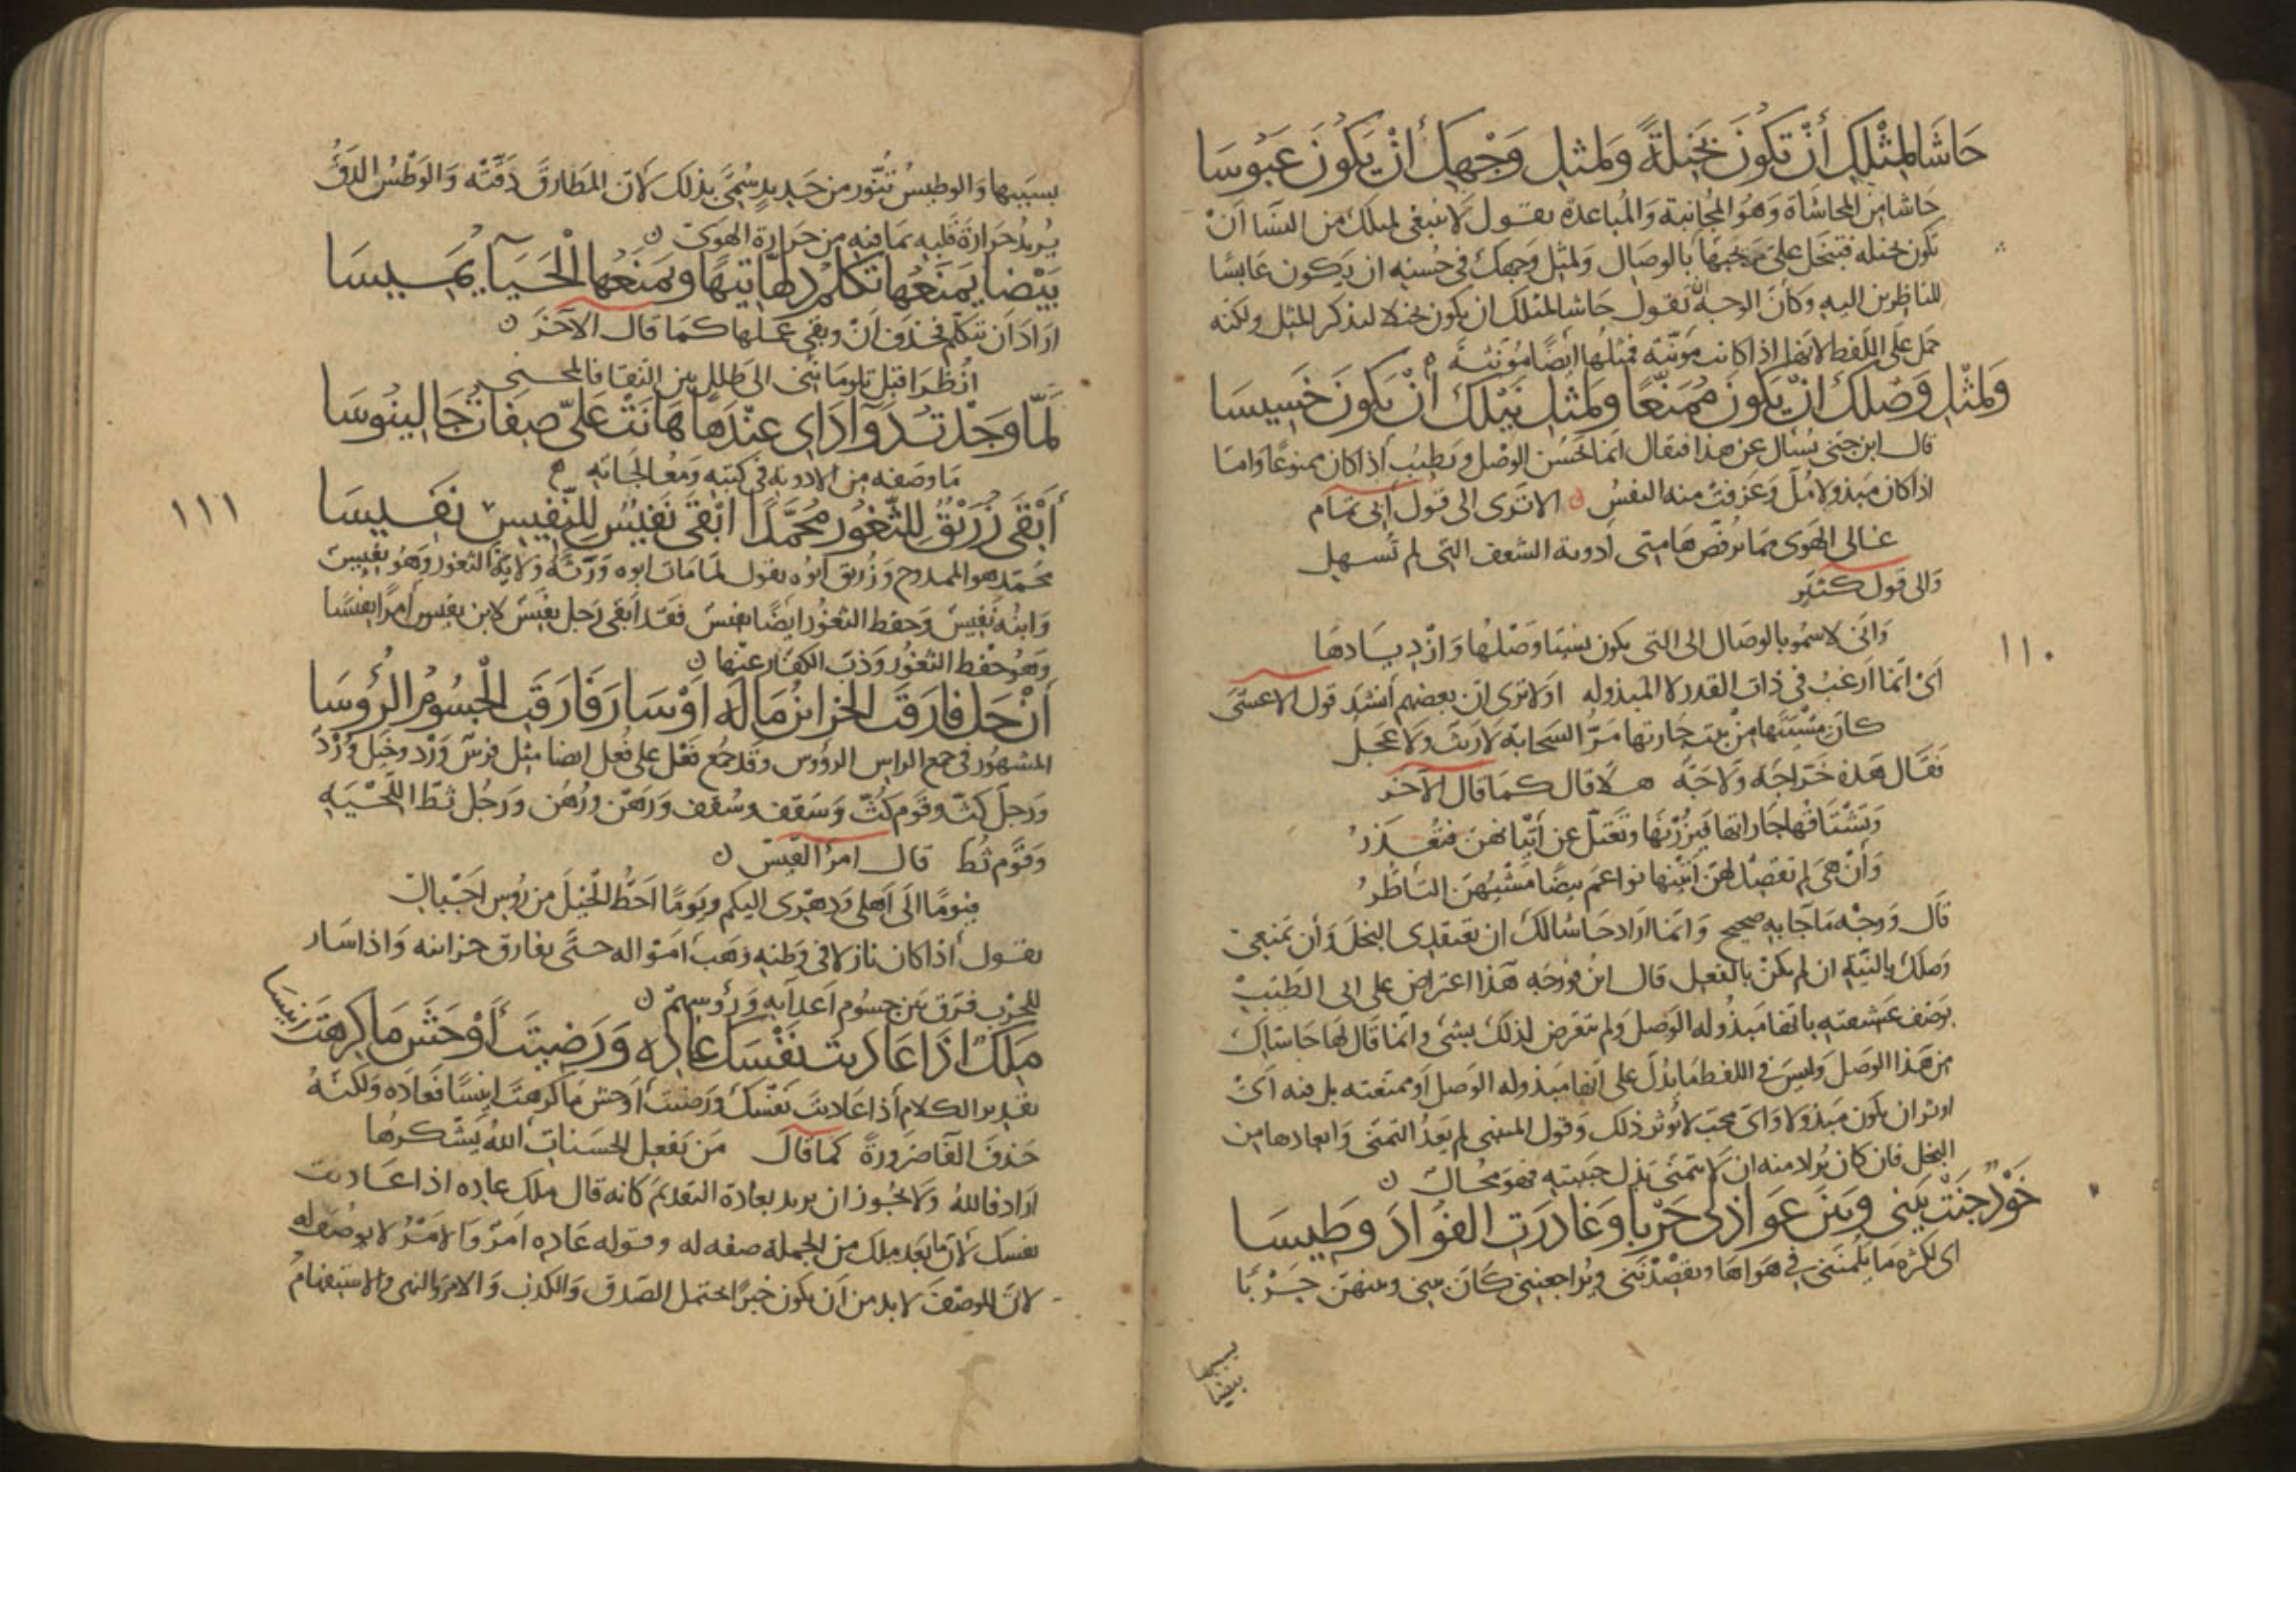 حَاشَا لِمِثْلِكِ أَنْ تَكُونَ بَخِيلَةً وَلِمثلِ وَجْهِكِ أَنْ يَكُونَ عَبُوسَا
حَاشا من المحاشاة وَهُو المجانبة وَالمُباعدة يقول لا ينبغى لمثلك من النسَا أنْ
تكون بخيله فتبخل على محبّها بالوصال ولمثل وجهك فى حُسنه ان يكون عابسًا
للناظرين اليه وكأن الوجه ان يقول حاشا لمثلك ان يكون بخيلا لتذكير المثل ولكنه
حمل على اللفظ لانها اذا كانت مؤنّثة فمثلها ايضًا مؤنثة
وَلمثْلِ وَصْلِكِ انْ يَكُونَ مُمَنَّعًا وَلمثلِ نَيْلِكِ أنْ يَكونَ خَسِيسَا
قال ابن جنى يُسْال عن هذا فيقال انما يحسُن الوصْل ويطيب اذا كان ممنوعًا وَامّا
اذا كان مبذولا مُلّ وَعزفت منه النفسُ الا ترى الى قول أبى تمام
غالى الهوى مما يرقّص هامتى أروية الشعف التى لم تُسهِل
وَالى قول كثيّر
وَانّى لاسمُو بالوصال الى التى يكون سَنِيًّا وَصْلُها وَازْدِيَادهَا
أىْ انّما أرغب فى ذات القدر لا المبذوله اولا ترى ان بعضهم أنشد قول الاعشى
كأنّ مشْيتَها مِنْ بيت جارتها مَرّ السَحابة لا ريث ولا عجلُ
فقال هذه خرّاجة وَلاجة هلا قال كما قال الآخر
وَتشْتاقُها جاراتها فيزُرْنَها وتَعْتلّ عن أتيانهن فتُعْذرُ
وَأن هى لم تقصد لهنّ أتيْنها نواعم بيضًا مشيُهنّ التأطّرُ
قال وَوجْه ما جا به صحيح وَانما اراد حاشا لك ان تعتقدى البخل وأن تمنعى
وَصلك بالنيّة ان لم يكنْ بالفعل قال ابنُ فورجه هذا اعتراض على ابى الطيب
بوصف عشيقته بانها مبذوله الوَصل ولم يتعرض لذلك بشىء وانما قال لها حاشاك
من هذا الوَصل وليس فى اللفظ ما يدلّ على انها مبذوله الوَصل او ممنّعته بل فيه أىّ
اوثر ان يكون مبذولا وَاى محبّ لا يُوثر ذلك وَقول المتنبى لم يَعْدُ التمنى وَابعادها من
البخل فان كان يُراد منه ان لا يتمنى بذل حبيبته فهو محال ن
خَوْدٌ جَنَتْ بَيْنى وَبَيْنَ عَوَاذِلى حَرْبًا وَغَادَرَتِ الفُؤادَ وَطِيسَا
اى لكثرة ما يلُمننى فى هواها ويقصدننى ويُراجعننى كان بينى وبينهنّ حَرْبًا
١١٠
بسببها
بيضا
بسببها وَالوطيسُ تنّور من حديد سُمّى بذلك لأن المطارق دقّته وَالوَطْسُ الدقُّ
يُريدُ حَرارةَ قلبه بما فيه من حرارة الهوى ن
بَيْضا يَمنَعُها تكلّمَ دَلُّها تِيْهًا وَيَمنَعُها الْحَيَآ تميسَا
ارَادَ ان تتكلّم فحذف أنْ وبقى عملها كما قال الآخر ن
انظرا قبل تلومانى الى طلل بين النقا فالمنحنى
لَمّا وَجَدْتُ دَوَآ دَاى عِنْدَها هَانَتْ عَلىّ صِفَاتُ جَالِينُوسَا
ما وصفه من الادوية فى كتبه وَمعالجاته
أَبْقَى زُرَيْقُ لِلثُّغُورِ مُحَمَّدًا أبْقَى نَفِيسٌ لِلنَّفِيسِ نَفِيسَا
محمّد هو الممدوح وَزُريق ابوُه يقول لما مات ابوه وَرّثه وَلاية الثغور وَهُو نفيس
وَابنُه نفيس وَحفظ الثغُور ايضًا نفيس فقد أبقى رَجل نفيس لابن نفيس امرًا نفيسًا
وَهُو حفْظ الثغُور وَذبّ الكفّار عنها ن
أنْ حَلّ فَارَقَتِ الخَزايِنُ مَالَه اوْ سَارَ فَارَقَتِ الْجُسُومُ الرُؤسَا
المشهُور فى جمع الراس الرؤوس وَقد جُمع فَعْل على فُعْل ايضا مثل فرسٌ وَرْد وخَيل وُرْدٌ
وَرَجلَ كَثّ وقوم كُثّ وَسَقف وسُقف وَرَهْن ورُهُن وَرجُل ثطّ اللّحْيَه
وَقوْم ثُطّ قال امرُ القَيس ن
فيومًا الى أهلى وَدهرى اليكم ويومًا احُطّ الْخَيلَ من رُوس اجْبال
يقول اذا كان نازلا فى وَطنه وَهب امواله حتى يفارق خزاينه وَاذا سَار
للحرب فرّق بَين جسُوم أعدايه وَرؤوسهمْ ن
مَلِكٌ اذَا عَادَيْتَ نَفْسَكَ عَادِهِ وَرَضِيتَ أوْحَشَ مَا كَرِهْتَ انِيسَا
تقدير الكلام اذا عَاديت نَفْسَك وَرَضيت أوحش مَا كرهْت انيسًا فعاده وَلكنّهُ
حَذف الفَا ضَرورةً كما قال مَن يَفعلِ الحسَنات اللهُ يَشْكرُها
اراد فاللهُ وَلا يجُوز ان يريد بعاده التقديمَ كانه قال ملك عاده اذا عاديت
نفسك لأن ما بعد ملك من الجملة صفه له وقوله عَاده امرٌ وَالامْرُ لا يوصف به
لانّ الوصْفَ لا بد من أن يكون خبرًا يحتمل الصّدق وَالكذب وَالامرُ والنهى والاستفهام
١١١